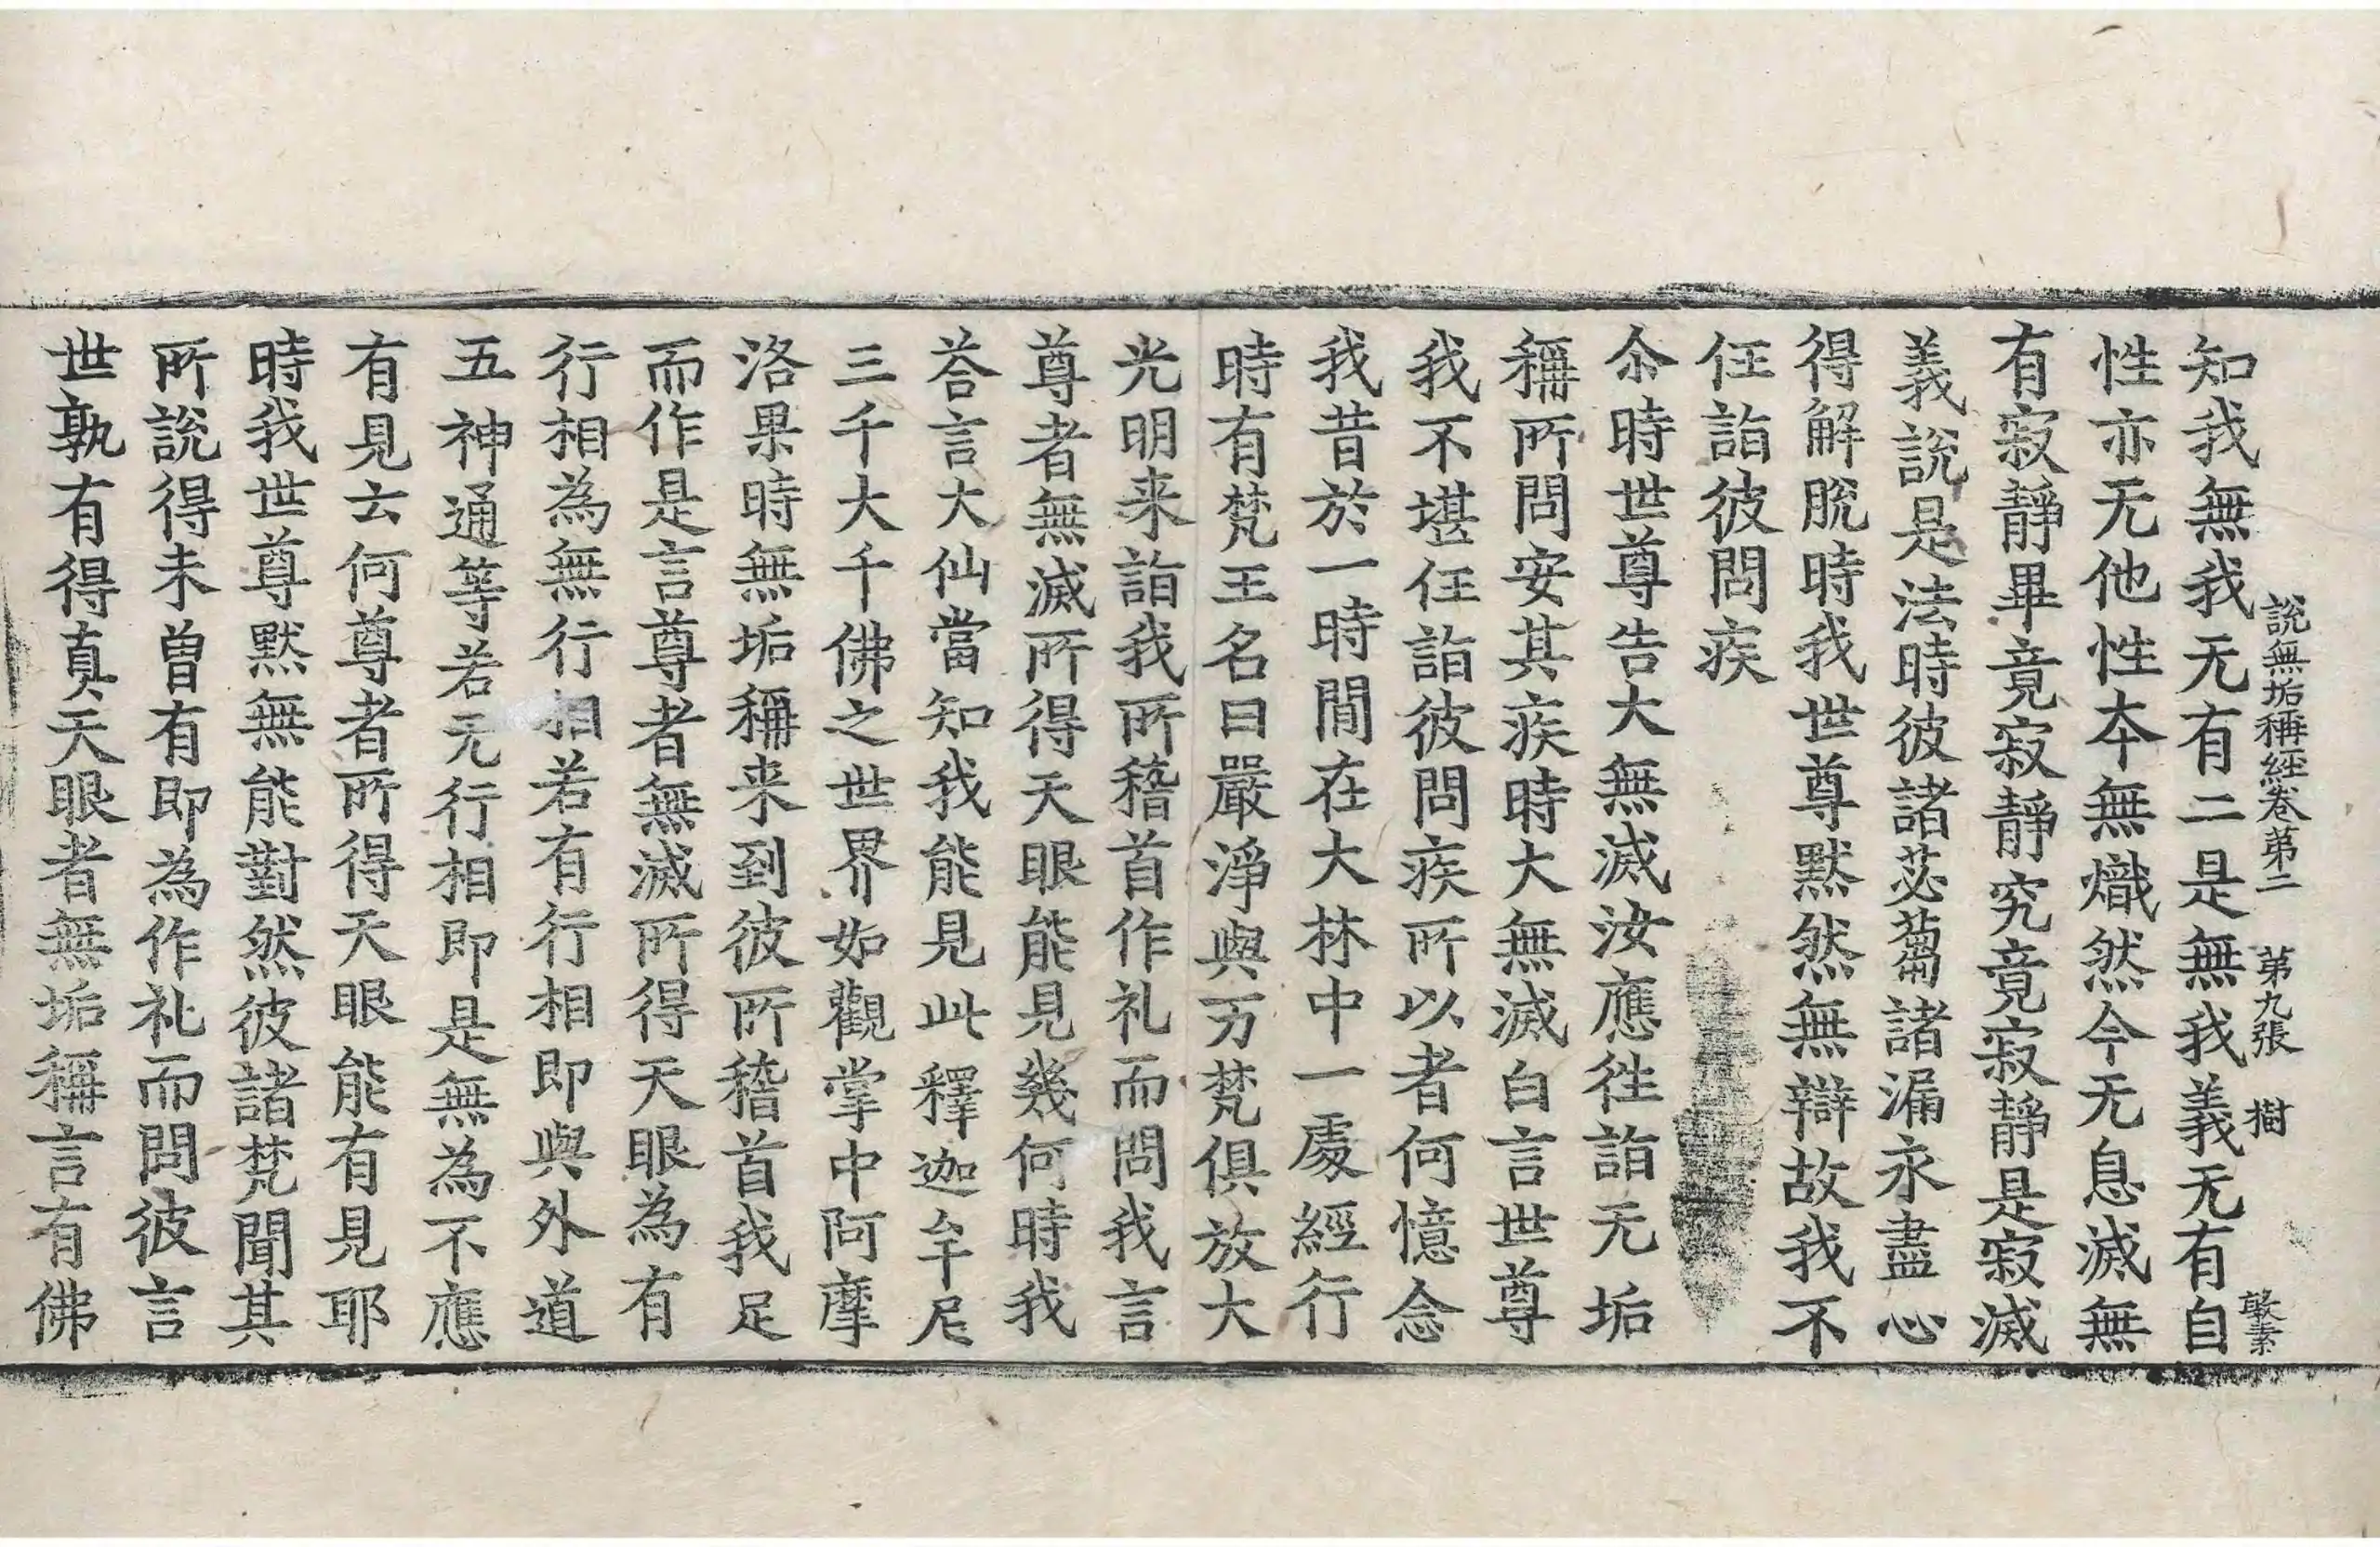 說無垢稱經卷第二 第九張 樹 敏素
知我無我无有二是無我義无有自
性亦无他性夲無熾然今无息滅無
有寂靜畢竟寂靜究竟寂靜是寂滅
義說是法時彼諸苾蒭諸漏永盡心
得解脫時我世尊默然無辯故我不
任詣彼問疾
尒時世尊告大無滅汝應徃詣无垢
稱所問安其疾時大無滅白言世尊
我不堪任詣彼問疾所以者何憶念
我昔於一時閒在大林中一處經行
時有梵王名曰嚴淨與万梵俱放大
光明来詣我所稽首作礼而問我言
尊者無滅所得天眼能見幾何時我
荅言大仙當知我能見此釋迦牟尼
三千大千佛之世界如觀掌中阿摩
洛果時無垢稱来到彼所稽首我足
而作是言尊者無滅所得天眼為有
行相為無行相若有行相即與外道
五神通等若无行相即是無為不應
有見云何尊者所得天眼能有見耶
時我世尊默無能對然彼諸梵聞其
所說得未曾有即為作礼而問彼言
世孰有得真天眼者無垢稱言有佛